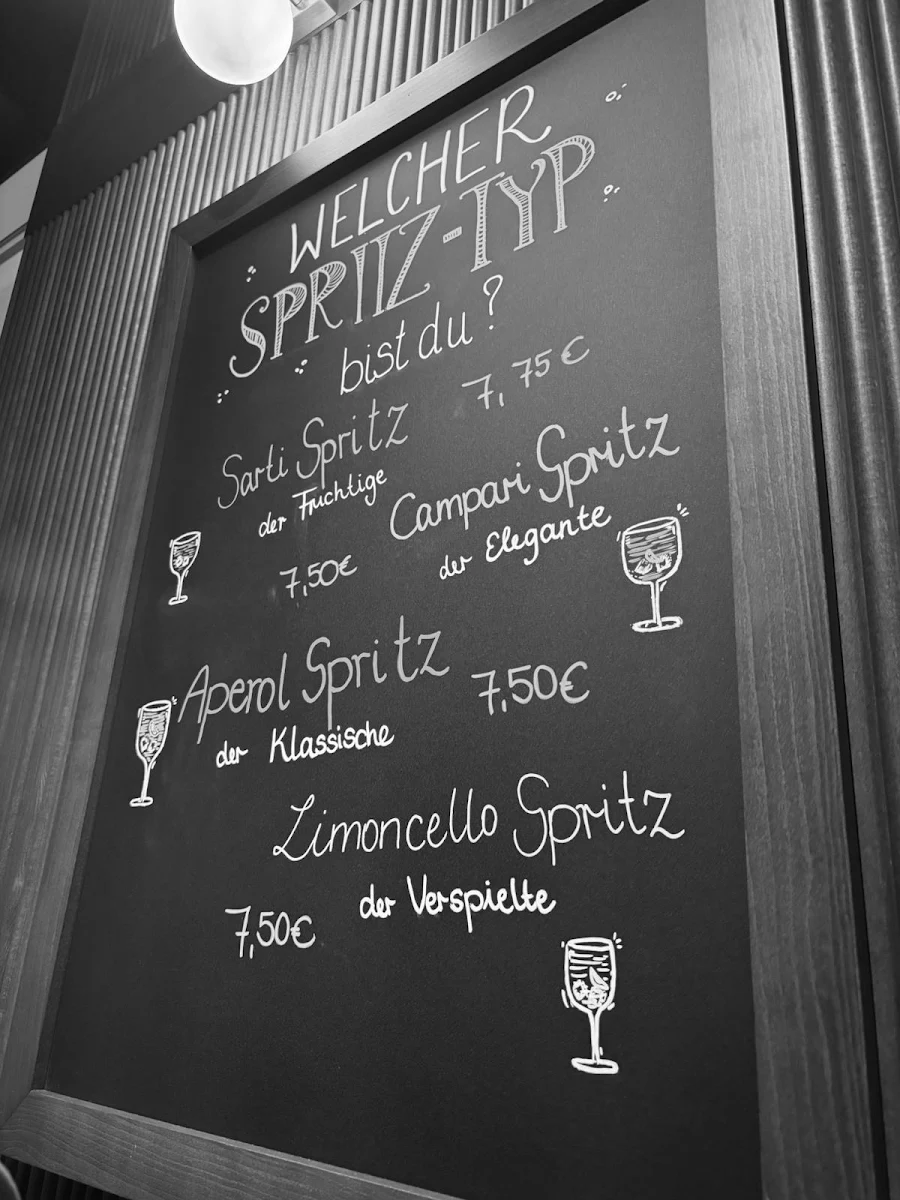 WELCHER
SPRITZ-TYP
bist du?
Sarti Spritz 7,75€
der Fruchtige
Campari Spritz
der Elegante
7,50€
Aperol Spritz 7,50€
der Klassische
Limoncello Spritz
der Verspielte
7,50€